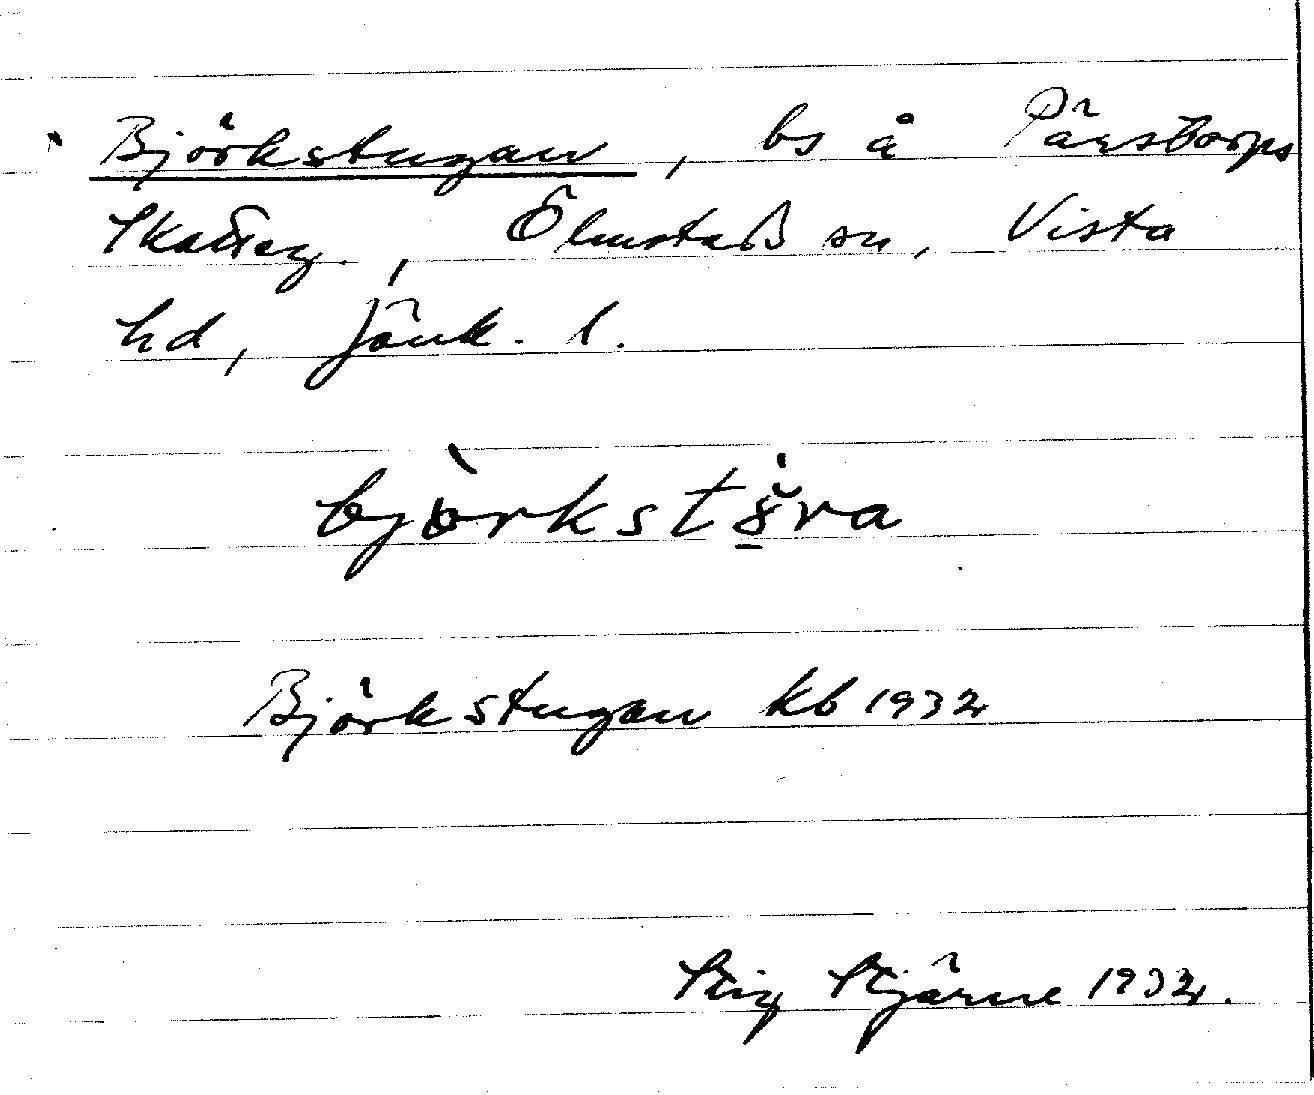 Björkstugan, bs å Pärstorps
Skatteg., Ölmstads sn, Vista
hd, Jönk. l.
Björkstugan kb 1932
Stig Stjärne 1932.